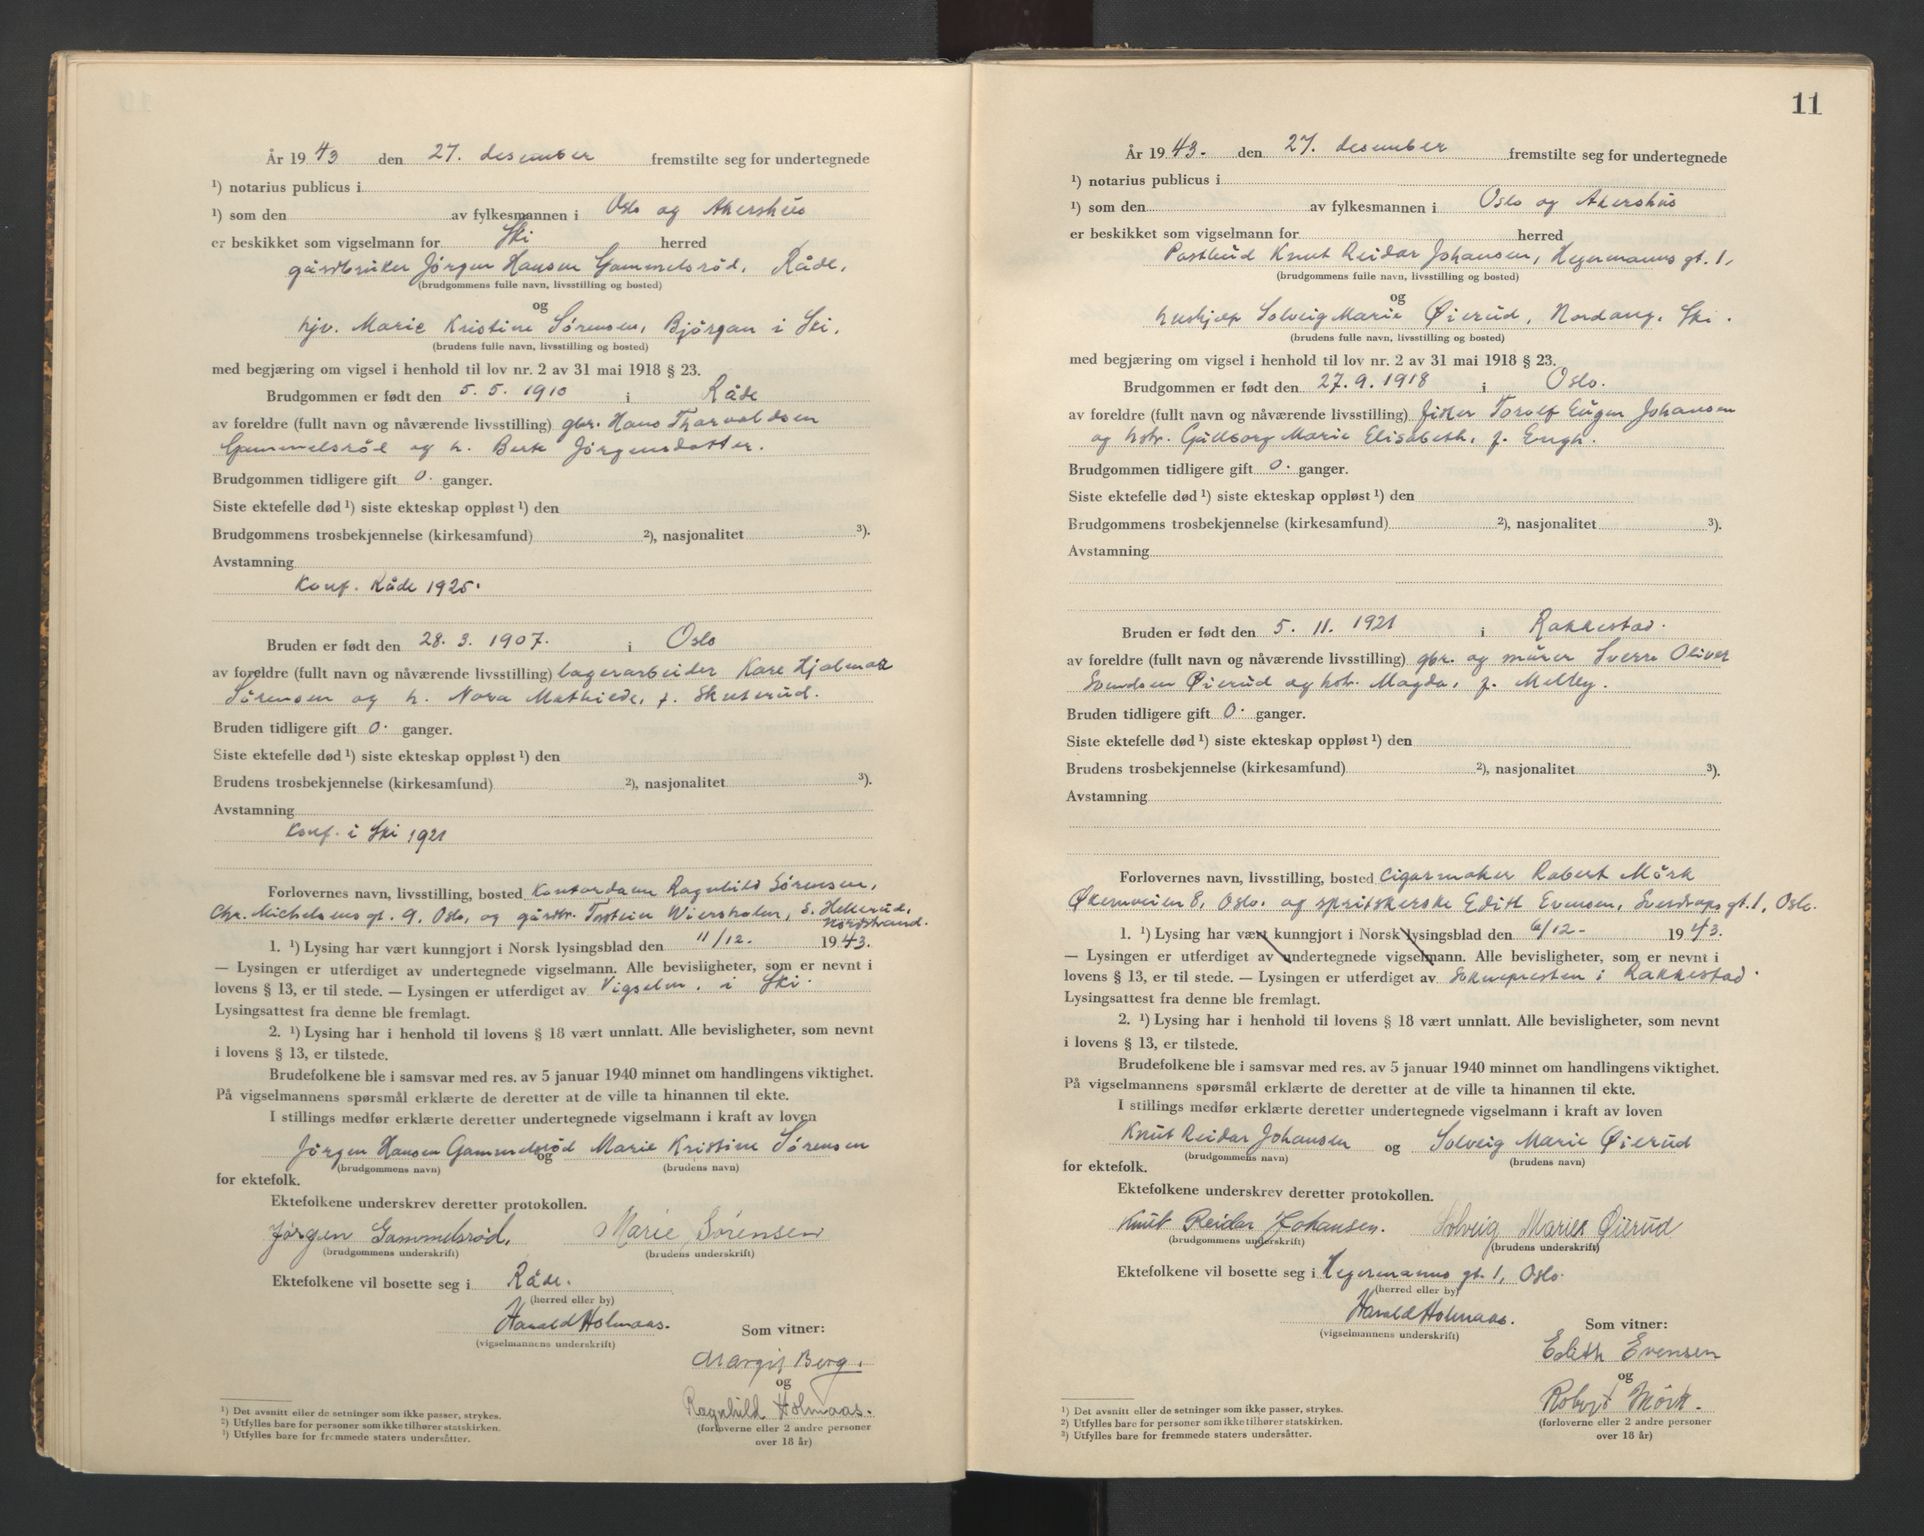 År 1943 den 27. desember fremstilte seg for undertegnede
¹) notarius publicus i
¹) som den av fylkesmannen i Oslo og Akershus
er beskikket som vigselmann for Ski herred
gårdbruker Jørgen Hansen Gammelsrød, Råde,
(brudgommens fulle navn, livsstilling og bosted)
og
hjv. Marie Kristine Sørensen, Bjørgan i Ski.
(brudens fulle navn, livsstilling og bosted)
med begjæring om vigsel i henhold til lov nr. 2 av 31 mai 1918 § 23.
Brudgommen er født den 5. 5. 1910 i Råde
av foreldre (fullt navn og nåværende livsstilling) gbr. Hans Thorvaldsen
Gammelsrød og h. Berte Jørgensdatter.
Brudgommen tidligere gift 0. ganger.
Siste ektefelle død ¹) siste ekteskap oppløst ¹) den
Brudgommens trosbekjennelse (kirkesamfund) ²), nasjonalitet ³).
Avstamning
Konf. Råde 1925.
Bruden er født den 28. 3. 1907. i Oslo
av foreldre (fullt navn og nåværende livsstilling) lagerarbeider Kare Hjalmar
Sørensen og h. Nora Mathilde, f. Skuterud.
Bruden tidligere gift 0. ganger.
Siste ektefelle død ¹) siste ekteskap oppløst ¹) den
Brudens trosbekjennelse (kirkesamfund) ²), nasjonalitet ³).
Avstamning
Konf. i Ski 1921
Forlovernes navn, livsstilling, bosted Kontordame Ragnhild Sørensen,
Chr. Michelsens gt. 9, Oslo, og gårdbr. Torstein Wiersholm, S. Hellerud,
Nordstrand.
1. ¹) Lysing har vært kunngjort i Norsk lysingsblad den 11/12. 1943.
— Lysingen er utferdiget av undertegnede vigselmann. Alle bevisligheter, som er nevnt i
lovens § 13, er til stede. — Lysingen er utferdiget av Vigselm. i Ski.
Lysingsattest fra denne ble fremlagt.
2. ¹) Lysing har i henhold til lovens § 18 vært unnlatt. Alle bevisligheter, som nevnt
i lovens § 13, er tilstede.
Brudefolkene ble i samsvar med res. av 5 januar 1940 minnet om handlingens viktighet.
På vigselmannens spørsmål erklærte de deretter at de ville ta hinannen til ekte.
I stillings medfør erklærte deretter undertegnede vigselmann i kraft av loven
Jørgen Hansen Gammelsrød og Marie Kristine Sørensen
(brudgommens navn) (brudens navn)
for ektefolk.
Ektefolkene underskrev deretter protokollen.
Jørgen Gammelsrød. Marie Sørensen
(brudgommens underskrift) (brudens underskrift)
Ektefolkene vil bosette seg i Råde.
(herred eller by)
Harald Holmaas.
(vigselmannens underskrift)
Som vitner:
Margit Berg.
og
Ragnhild Holmaas.
(forloverne eller 2 andre personer
over 18 år)
¹) Det avsnitt eller de setninger som ikke passer, strykes.
²) Utfylles bare for personer som ikke tilhører statskirken.
³) Utfylles bare for fremmede staters undersåtter.
11
År 1943. den 27. desember fremstilte seg for undertegnede
¹) notarius publicus i
¹) som den av fylkesmannen i Oslo og Akershus
er beskikket som vigselmann for herred
Postbud Knut Reidar Johansen, Hegermanns gt. 1,
(brudgommens fulle navn, livsstilling og bosted)
og
hushjelp Solveig Marie Øierud, Nordang. Ski.
(brudens fulle navn, livsstilling og bosted)
med begjæring om vigsel i henhold til lov nr. 2 av 31 mai 1918 § 23.
Brudgommen er født den 27. 9. 1918 i Oslo.
av foreldre (fullt navn og nåværende livsstilling) fisker Torolf Eugen Johansen
og hstr. Gullborg Marie Elisabeth, f. Engh.
Brudgommen tidligere gift 0. ganger.
Siste ektefelle død ¹) siste ekteskap oppløst ¹) den
Brudgommens trosbekjennelse (kirkesamfund) ²), nasjonalitet ³).
Avstamning
Bruden er født den 5. 11. 1921 i Rakkestad.
av foreldre (fullt navn og nåværende livsstilling) gbr. og murer Sverre Oliver
Svendsen Øierud og hstr. Magda, f. Melby.
Bruden tidligere gift 0. ganger.
Siste ektefelle død ¹) siste ekteskap oppløst ¹) den
Brudens trosbekjennelse (kirkesamfund) ²), nasjonalitet ³).
Avstamning
Forlovernes navn, livsstilling, bosted Cigarmaker Robert Mørk
Økernveien 8, Oslo. og spritekserske Edith Evensen, Sverdrups gt. 1, Oslo.
1. ¹) Lysing har vært kunngjort i Norsk lysingsblad den 6/12- 1943.
— Lysingen er utferdiget av undertegnede vigselmann. Alle bevisligheter, som er nevnt i
lovens § 13, er til stede. — Lysingen er utferdiget av Soknepresten i Rakkestad.
Lysingsattest fra denne ble fremlagt.
2. ¹) Lysing har i henhold til lovens § 18 vært unnlatt. Alle bevisligheter, som nevnt
i lovens § 13, er tilstede.
Brudefolkene ble i samsvar med res. av 5 januar 1940 minnet om handlingens viktighet.
På vigselmannens spørsmål erklærte de deretter at de ville ta hinannen til ekte.
I stillings medfør erklærte deretter undertegnede vigselmann i kraft av loven
Knut Reidar Johansen og Solveig Marie Øierud
(brudgommens navn) (brudens navn)
for ektefolk.
Ektefolkene underskrev deretter protokollen.
Knut Reidar Johansen. Solveig Marie Øierud
(brudgommens underskrift) (brudens underskrift)
Ektefolkene vil bosette seg i Hegermanns gt. 1, Oslo.
(herred eller by)
Harald Holmaas.
(vigselmannens underskrift)
Som vitner:
Edith Evensen
og
Robert Mörk.
(forloverne eller 2 andre personer
over 18 år)
¹) Det avsnitt eller de setninger som ikke passer, strykes.
²) Utfylles bare for personer som ikke tilhører statskirken.
³) Utfylles bare for fremmede staters undersåtter.